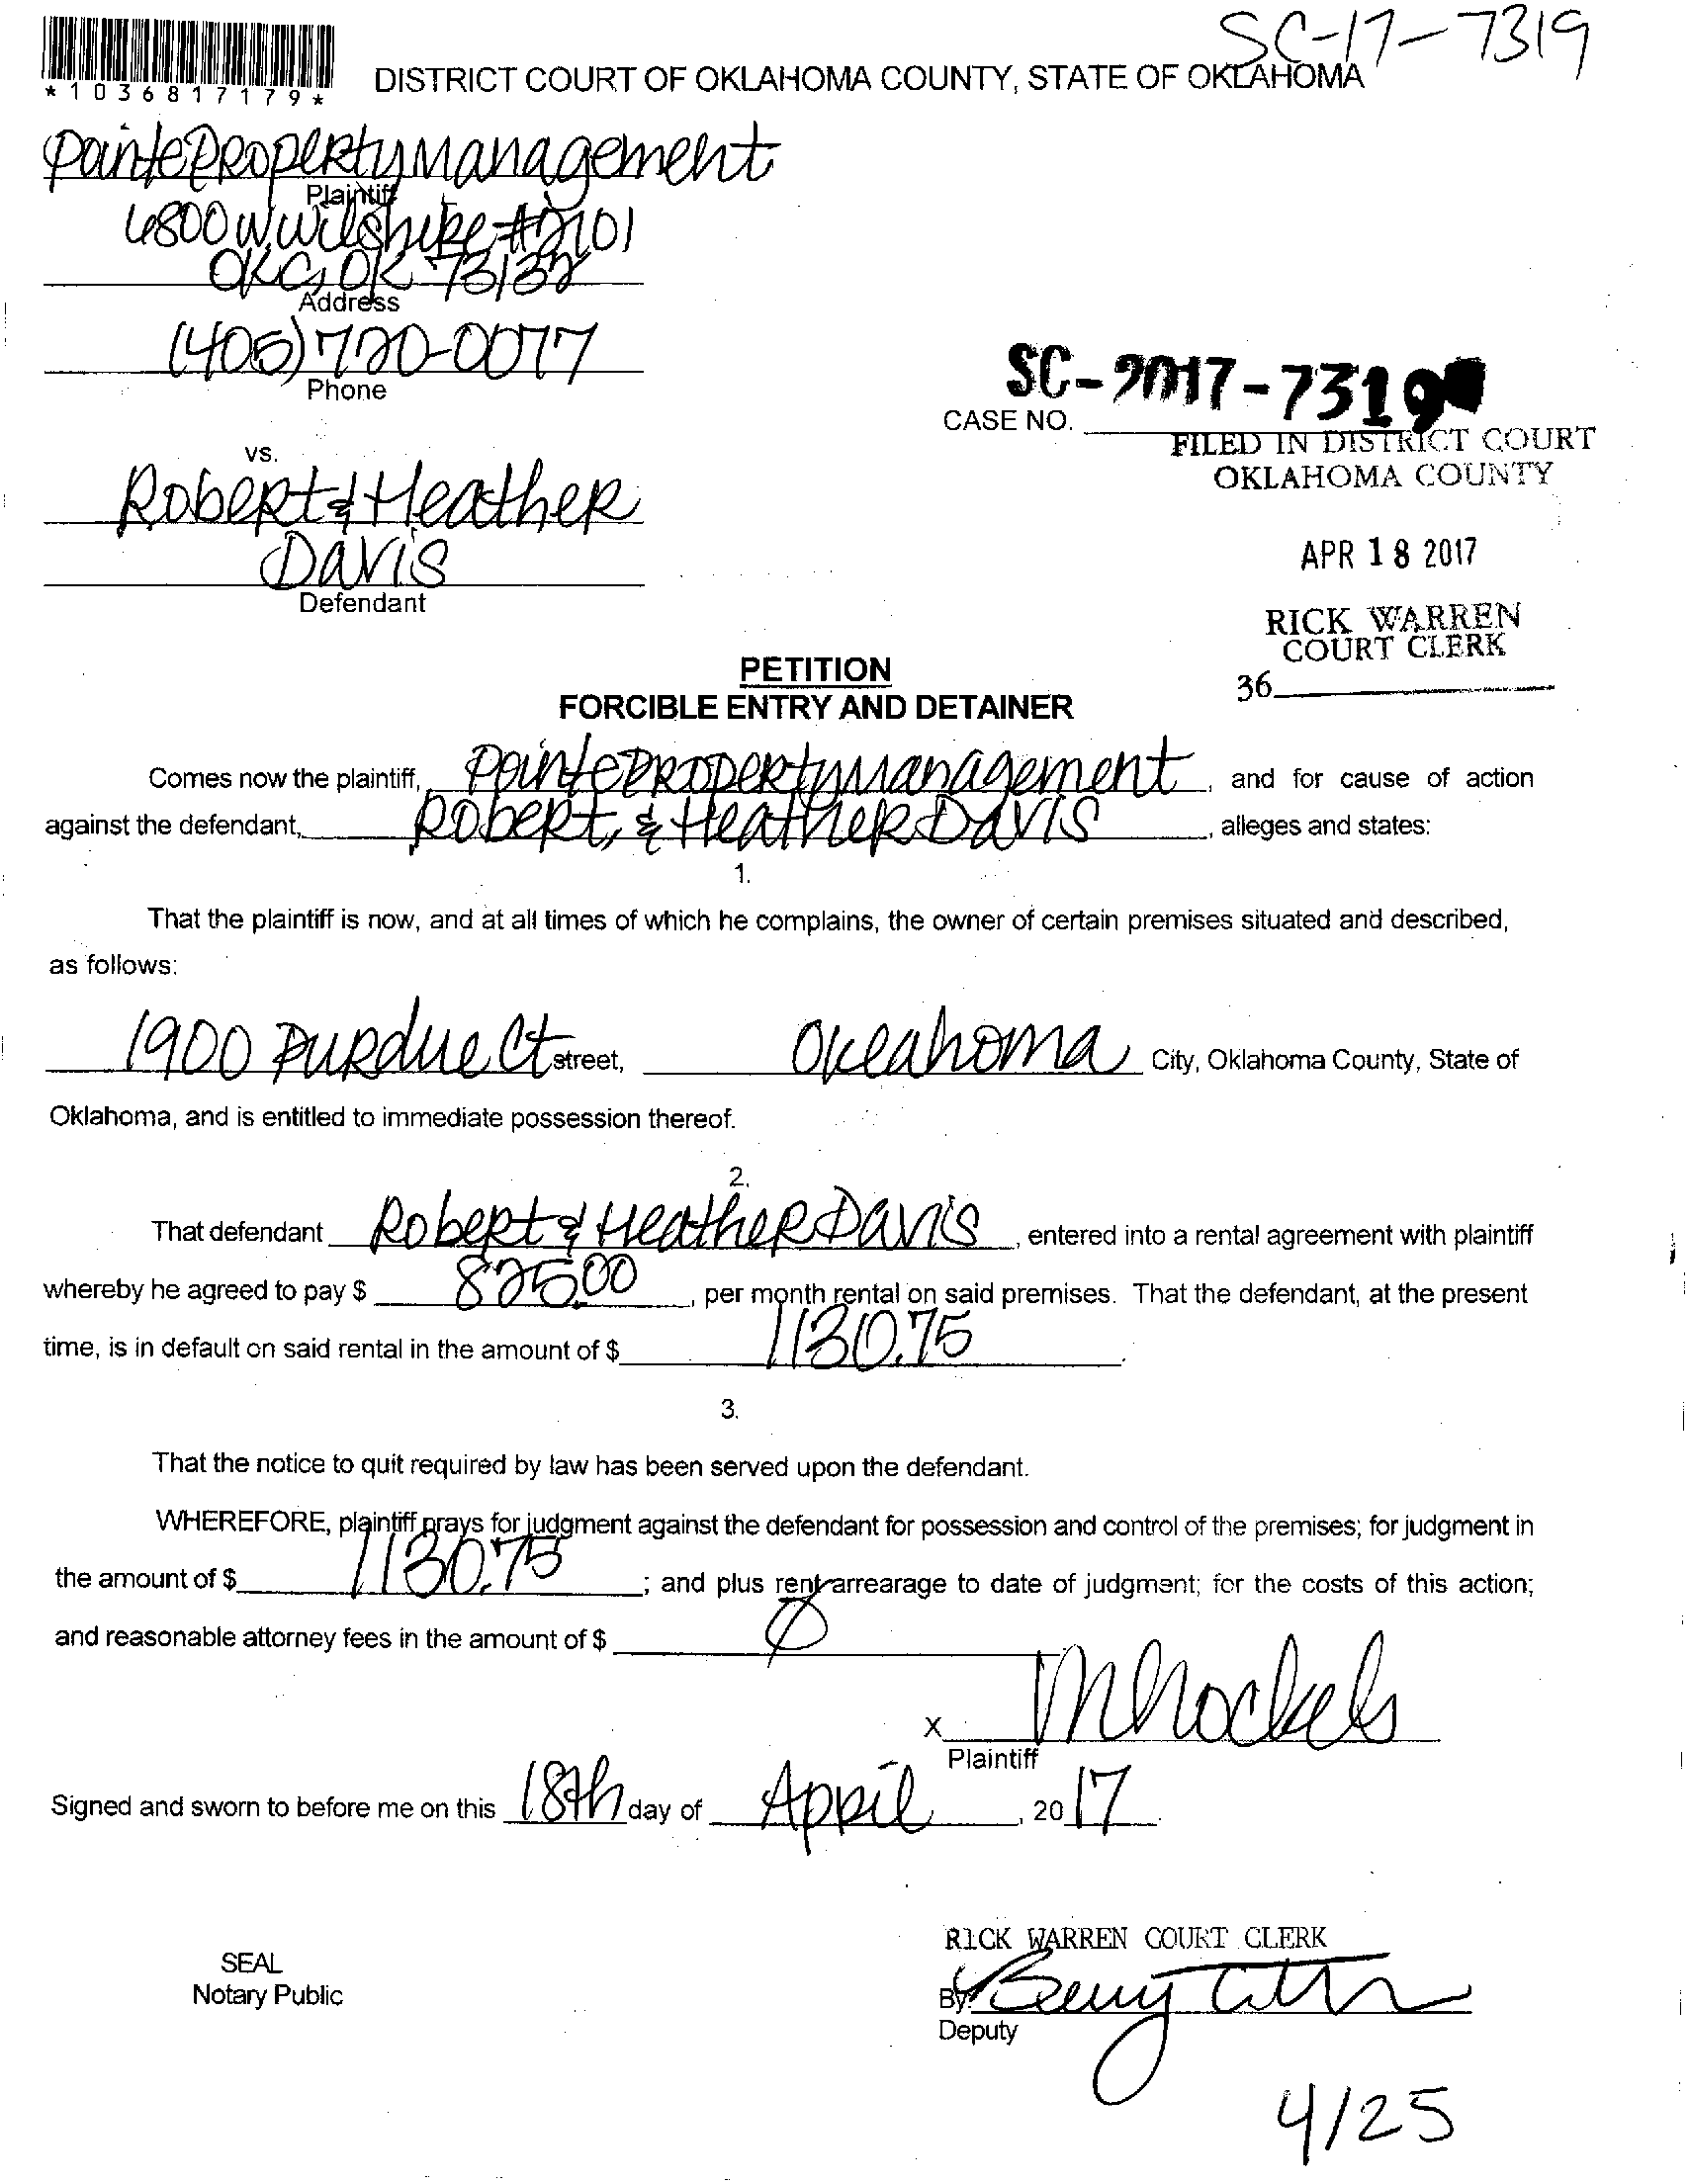 SC-17-7319
*1036817179*
DISTRICT COURT OF OKLAHOMA COUNTY, STATE OF OKLAHOMA
Pointe Property Management
Plaintiff
6800 W. Wilshire #2101
OKC, OK 73132
Address
(405) 720-0077
Phone
SC-2017-7319
CASE NO.
FILED IN DISTRICT COURT
OKLAHOMA COUNTY
vs.
Robert & Heather
Davis
Defendant
APR 18 2017
RICK WARREN
COURT CLERK
36
PETITION
FORCIBLE ENTRY AND DETAINER
Comes now the plaintiff, Pointe Property Management, and for cause of action
against the defendant, Robert & Heather Davis, alleges and states:
1.
That the plaintiff is now, and at all times of which he complains, the owner of certain premises situated and described,
as follows:
1900 Purdue Ct street, Oklahoma City, Oklahoma County, State of
Oklahoma, and is entitled to immediate possession thereof.
2.
That defendant Robert & Heather Davis, entered into a rental agreement with plaintiff
whereby he agreed to pay $ 825.00, per month rental on said premises. That the defendant, at the present
time, is in default on said rental in the amount of $ 1130.75.
3.
That the notice to quit required by law has been served upon the defendant.
WHEREFORE, plaintiff prays for judgment against the defendant for possession and control of the premises; for judgment in
the amount of $ 1130.75; and plus rent arrearage to date of judgment; for the costs of this action;
and reasonable attorney fees in the amount of $ 0
X
Plaintiff
Signed and sworn to before me on this 18th day of April, 2017.
RICK WARREN COURT CLERK
SEAL
Notary Public
By:
Deputy
4/25